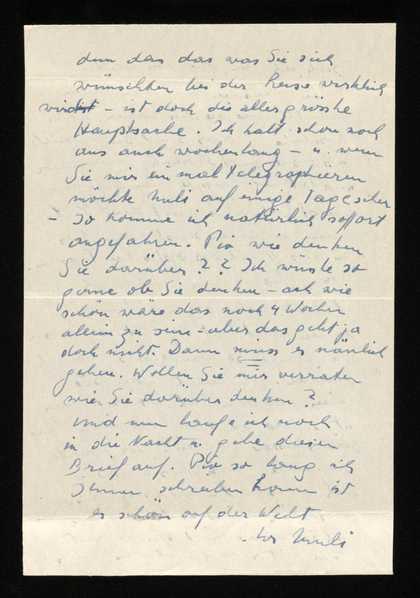 denn das das was Sie sich
wünschten bei der Reise wirklich
wird - ist doch die allergrösste
Hauptsache. Ich halt schon noch
aus auch wochenlang - u. wenn
Sie mir einmal telegraphieren
möchte Muli auf einige Tage
- So komme ich natürlich soffort
angefahren. Pix wie denken
Sie darüber?? Ich wüsste so
gerne ob Sie denken - ach wie
schön wäre das noch 4 Wochen
allein zu sein - aber das geht ja
doch nicht. Dann muss es nämlich
gehen. Wollen Sie mir verraten
wie Sie darüber denken?
Und nun laufe ich noch
in die Nacht u. gebe diesen
Brief auf. Pix so lang ich
Ihnen schreiben kann ist
es schön auf der Welt
Muli